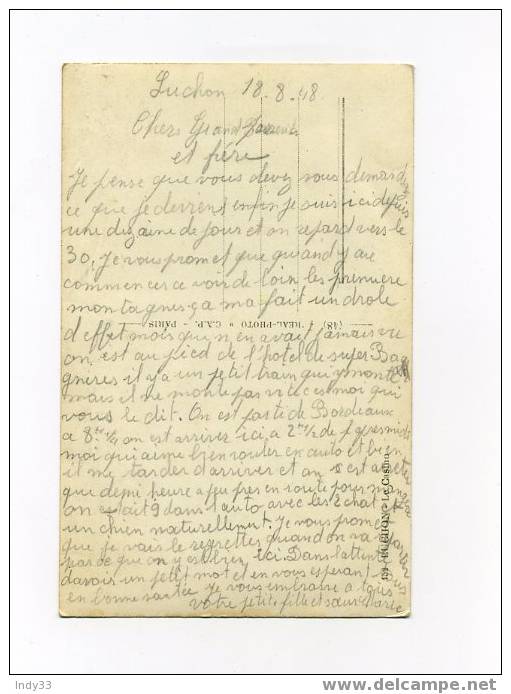 Luchon 18.8.48
Chers Grand Parents
et frère
Je pense que vous devez vous demandez
ce que je deviens enfin je suis ici depuis
une dizaine de jour et on repard vers le
30. Je vous promet que quand y au
commencer ce voir de loin les premiere
montagnes ça ma fait un drole
d'effet mois qui n'en avait jamais vu
on est au pied de l'hotel de super Ba
gneres il y a un petit train qui y monte
mais et ne monte pas vite ces moi qui
vous le dit. On est partie de Bordeaux
a 8h 1/4 on est arriver ici a 2h 1/2 de
moi qui aime bien router en auto et bien
il me tarder d'arriver et on s est arrêter
que demi heure a peu pres en route pour manger
on etait 9 dans l'auto avec les 2 chat et
un chien naturellement. Je vous promet
que je vais le regrettes quand on va partir
parce que on y est bien ici. Dans l'attente
d'avoir un petit mot et en vous esperant tous
en bonne santée je vous embrasse a tous
votre petite fille et sœur
(48) "REAL-PHOTO" C.A.P. - PARIS
LUCHON - Le Casino
Indy33
www.delcampe.net